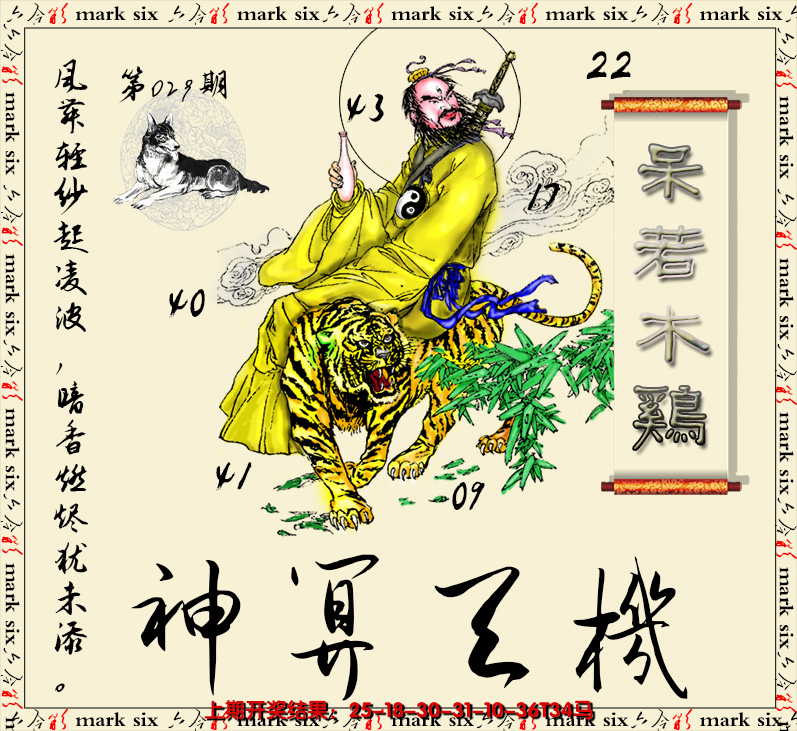 mark six 今彩 mark six 今彩 mark six 今彩 mark six 今彩 mark six
第029期
风舞轻纱起凌波，暗香燃烬犹未添。
22
43
17
40
41
09
呆若木鷄
神算天機
上期开奖结果：25-18-30-31-10-36T34马